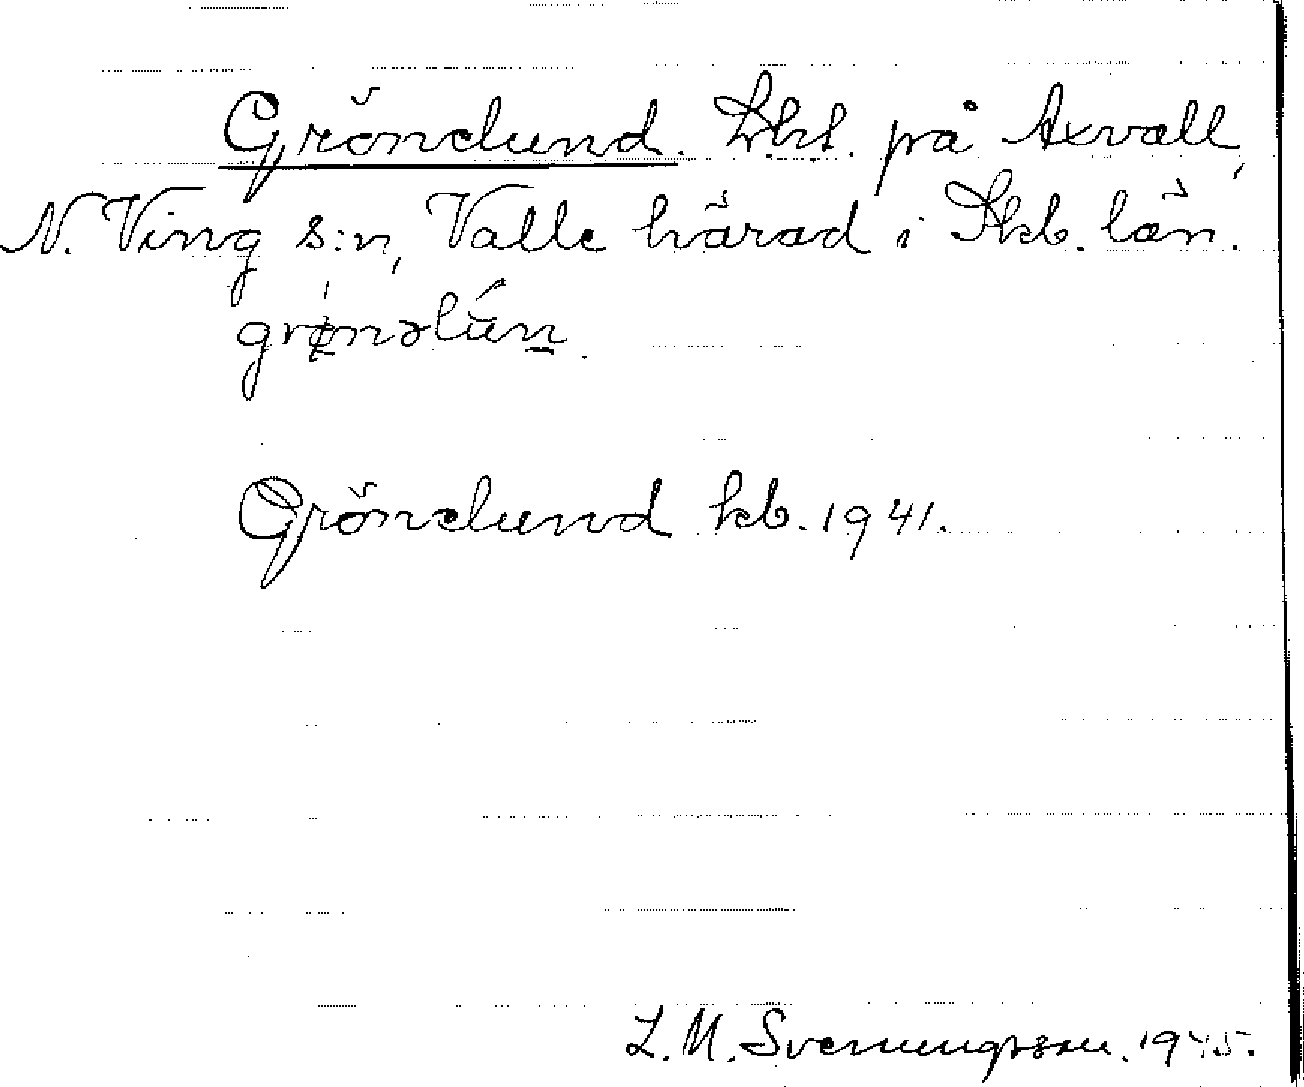 Grönelund. Lht. på Axvall,
N. Ving s:n, Valle härad i Skb. län.
grønəlún
Grönelund kb. 1941.
L. M. Svenungsson. 1945.